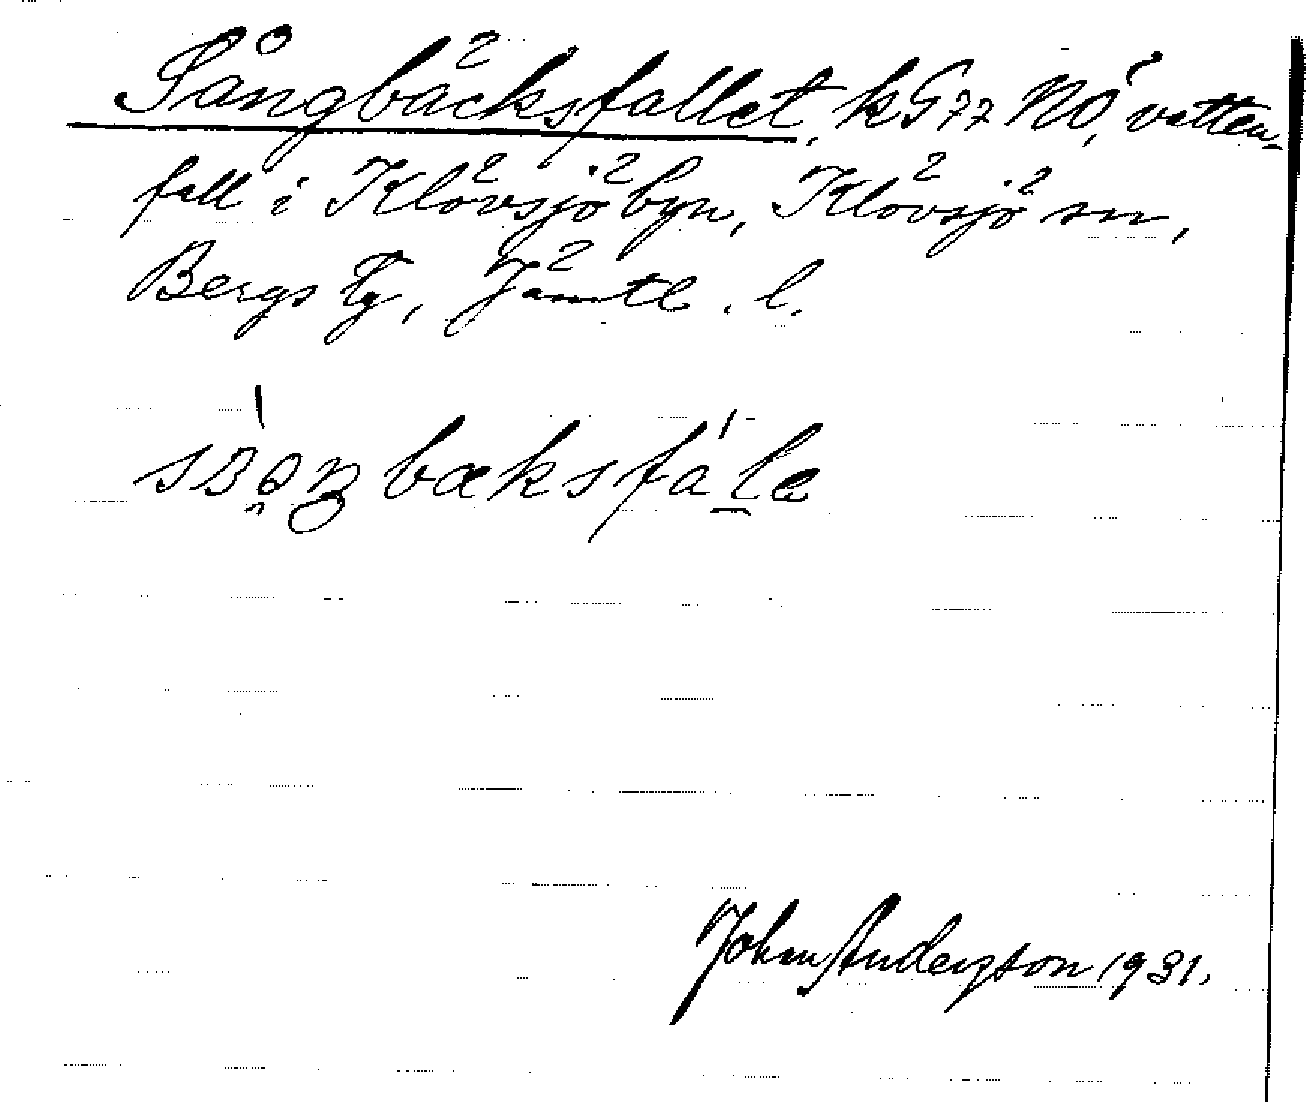 Sångbäcksfallet, k G 77 NÖ, vatten-
fall i Klövsjö byn, Klövsjö sn,
Bergs tg, Jämtl. l.
bæksfàlə
John Andersson 1931.